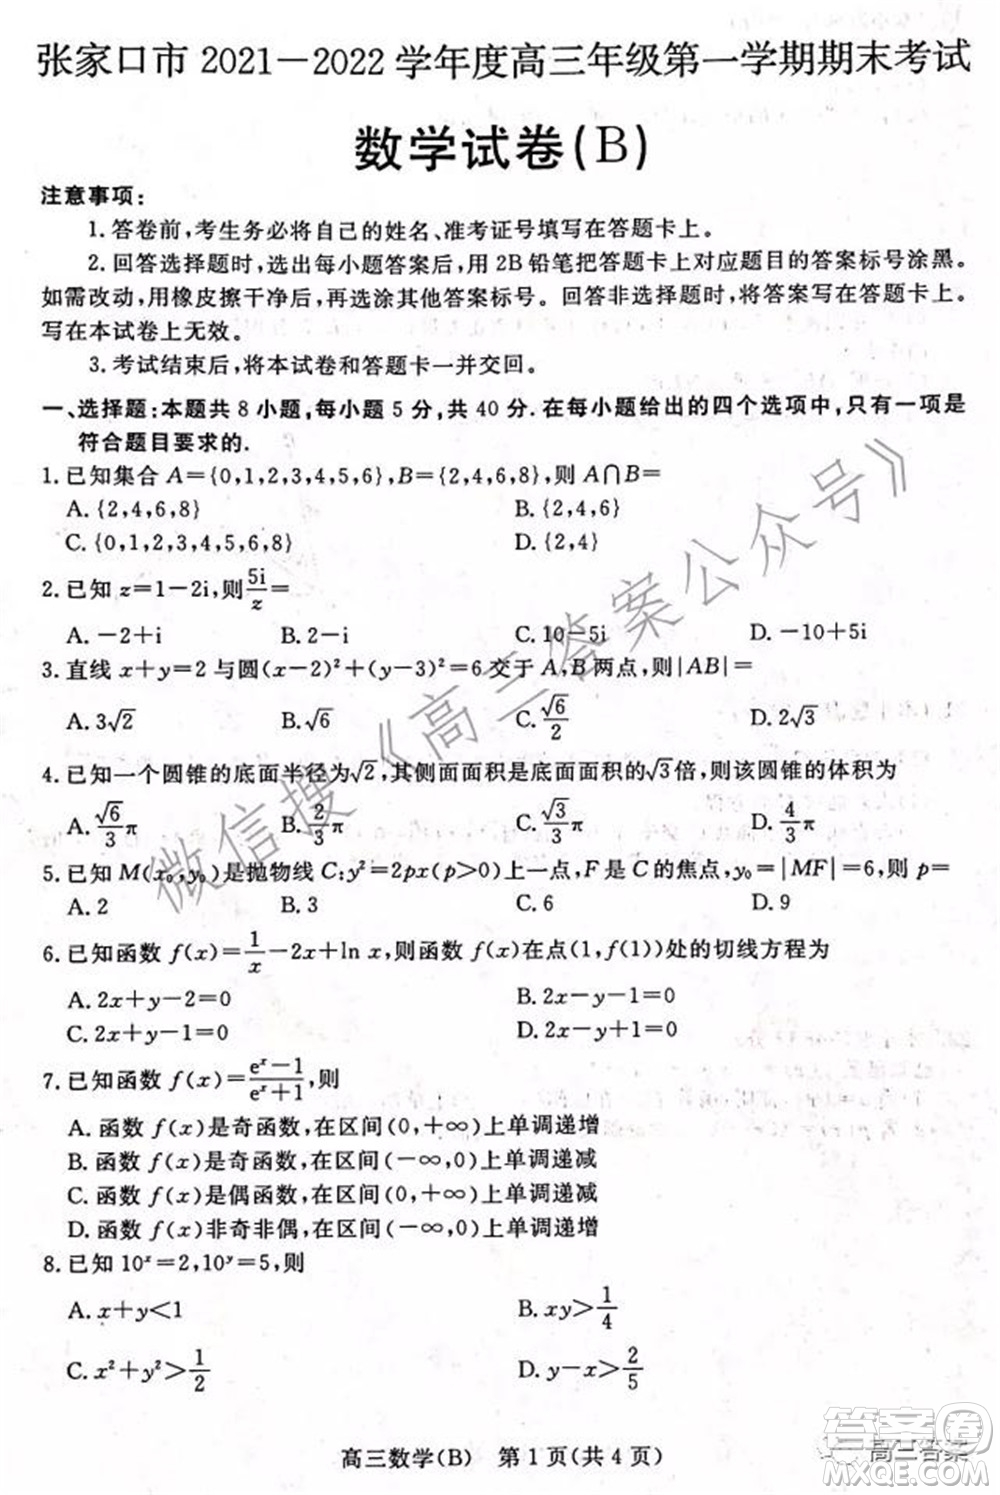 张家口市 2021－2022 学年度高三年级第一学期期末考试
数学试卷(B)
注意事项:
1. 答卷前,考生务必将自己的姓名、准考证号填写在答题卡上。
2. 回答选择题时,选出每小题答案后,用 2B 铅笔把答题卡上对应题目的答案标号涂黑。
如需改动,用橡皮擦干净后,再选涂其他答案标号。回答非选择题时,将答案写在答题卡上。
写在本试卷上无效。
3. 考试结束后,将本试卷和答题卡一并交回。
一、选择题:本题共 8 小题,每小题 5 分,共 40 分.在每小题给出的四个选项中,只有一项是
符合题目要求的.
1. 已知集合 A={0,1,2,3,4,5,6},B={2,4,6,8},则 A∩B=
A. {2,4,6,8} B. {2,4,6}
C. {0,1,2,3,4,5,6,8} D. {2,4}
2. 已知 z=1-2i,则5i/z=
A. -2+i B. 2-i C. 10-5i D. -10+5i
3. 直线 x+y=2 与圆(x-2)²+(y-3)²=6 交于 A,B 两点,则|AB|=
A. 3√2 B. √6 C. √6/2 D. 2√3
4. 已知一个圆锥的底面半径为√2,其侧面面积是底面面积的√3倍,则该圆锥的体积为
A. √6/3 π B. 2/3 π C. √3/3 π D. 4/3 π
5. 已知 M(x₀,y₀)是抛物线 C:y²=2px(p>0)上一点,F 是 C 的焦点,y₀=|MF|=6,则 p=
A. 2 B. 3 C. 6 D. 9
6. 已知函数 f(x)=1/x-2x+ln x,则函数 f(x)在点(1,f(1))处的切线方程为
A. 2x+y-2=0 B. 2x-y-1=0
C. 2x+y-1=0 D. 2x-y+1=0
7. 已知函数 f(x)=(eˣ-1)/(eˣ+1),则
A. 函数 f(x)是奇函数,在区间(0,+∞)上单调递增
B. 函数 f(x)是奇函数,在区间(-∞,0)上单调递减
C. 函数 f(x)是偶函数,在区间(-∞,0)上单调递减
D. 函数 f(x)非奇非偶,在区间(-∞,0)上单调递增
8. 已知 10ˣ=2,10ʸ=5,则
A. x+y<1 B. xy>1/4
C. x²+y²>1/2 D. y-x>2/5
高三数学(B) 第 1 页(共 4 页)
微信搜《高三答案公众号》
高三答案
答案圈
MXQE.COM